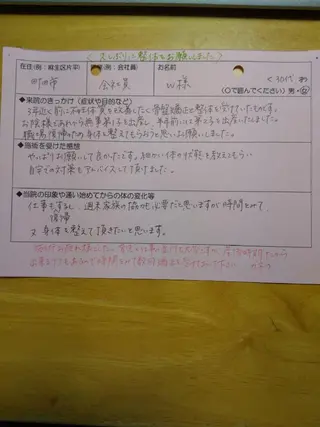 ＜久しぶりに整体をお願いしました＞
在住(例：麻生区片平)
(例：会社員)
お名前
町田市
会社員
W様
＜30代 女
(○で囲んでください) 男・女
◆来院のきっかけ（症状や目的など）
3年近く前に不妊体質を改善したく骨盤矯正と整体を受けたものです。
お陰様であれから無事第1子を出産し、半年前に第2子を出産いたしました。
職場復帰の為身体を整えてもらおうと思いお願いしました。
◆施術を受けた感想
やっぱりお願いして良かったです。細かい体の状態を教えてもらい
自宅での対策もアドバイスして頂けました。
◆当院の印象や通い始めてからの体の変化等
仕事をすると、週末家族の協力が必要だと思いますが時間をとって
又、身体を整えて頂きたいと思います。